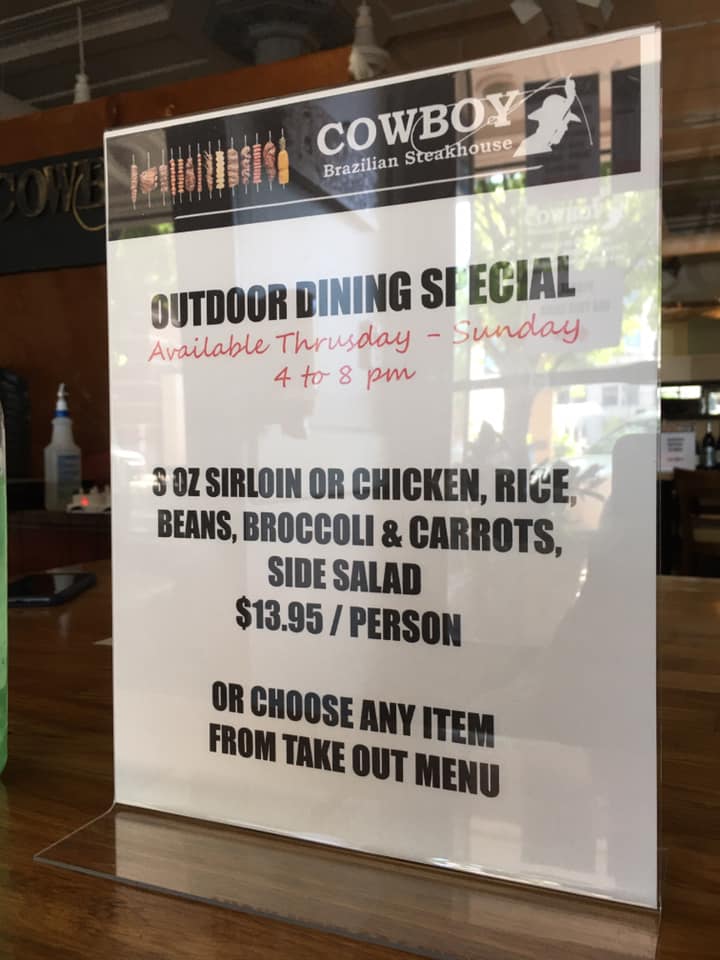 COWBOY
Brazilian Steakhouse
OUTDOOR DINING SPECIAL
Available Thrusday - Sunday
4 to 8 pm
8 OZ SIRLOIN OR CHICKEN, RICE,
BEANS, BROCCOLI & CARROTS,
SIDE SALAD
$13.95 / PERSON
OR CHOOSE ANY ITEM
FROM TAKE OUT MENU
COWB